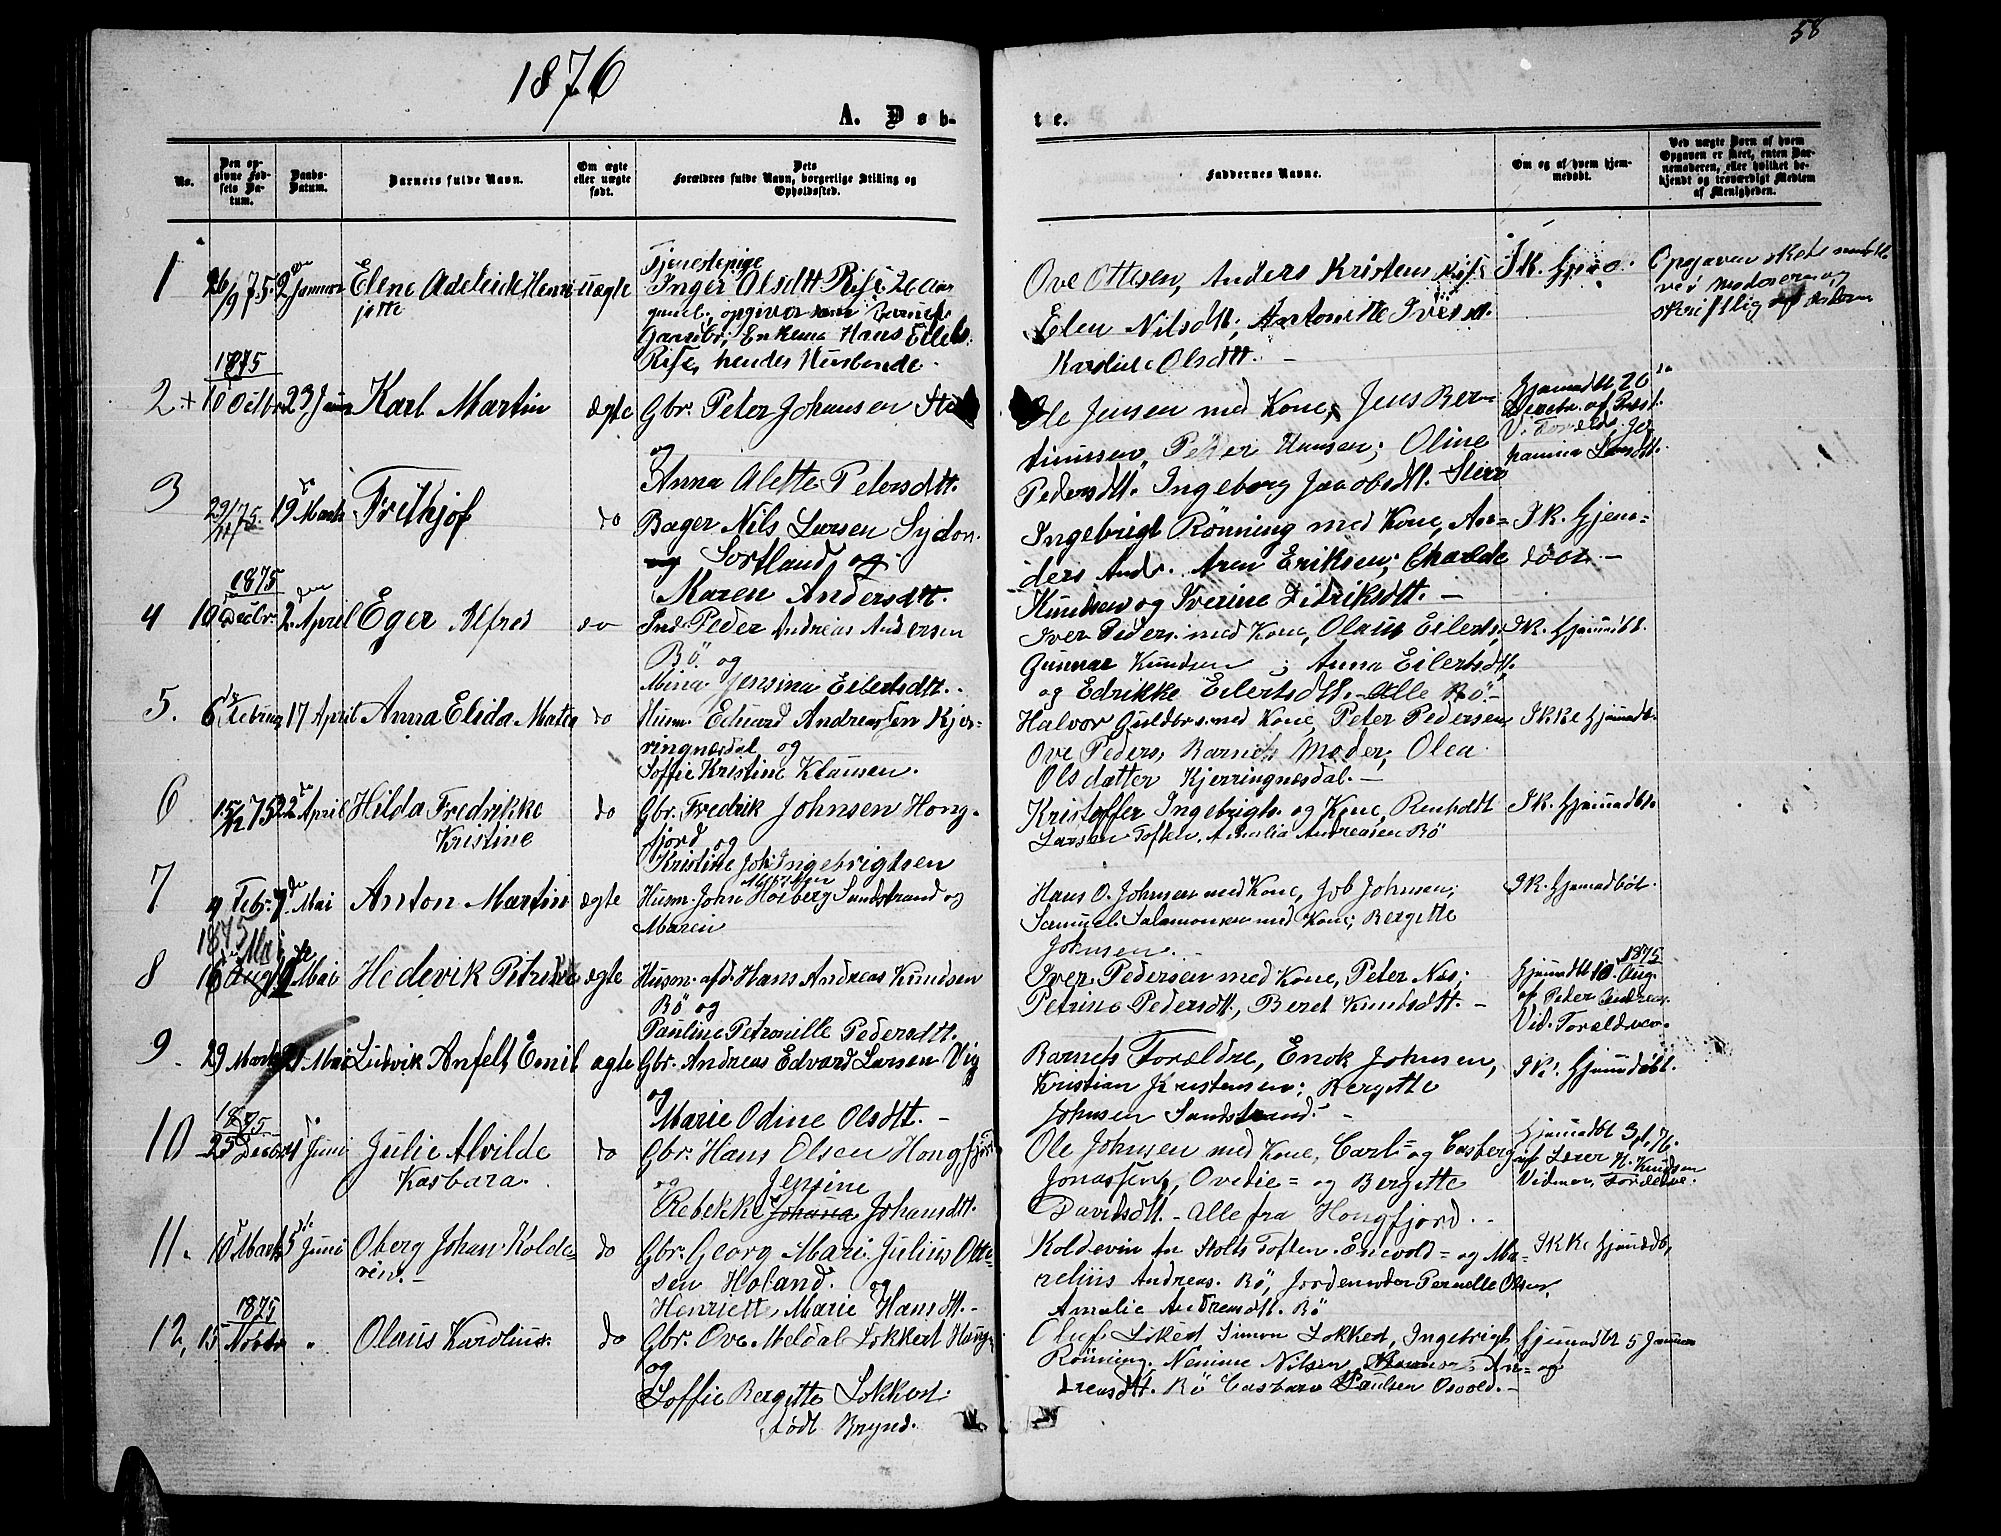 58
1876
A. Døb-
te.
No.
Den op-
givne Fød-
sels Da-
tum.
Daabs-
Datum.
Barnets fulde Navn.
Om ægte
eller uægte
født.
Dets
Forældres fulde Navn, borgerlige Stilling og
Opholdssted.
Faddernes Navne.
Om og af hvem hjem-
medøbt.
Ved uægte Børn af hvem
Opgaven er skeet, enten Bar-
nemoderen, eller hvilket be-
kjendt og troværdigt Medlem
af Menigheden.
1
26/9 75
2den Januar
Eline Adeleide Henri
jette
uægte
Tjenestepige
Inger Olsdtt Rise 26 Aar
gml., opgiver som Barnef.
Gaardbr, Enkem. Hans Eilerts.
Rise, hendes Husbonde.
Ove Ottesen, Anders Kristens. Rise
Elen Nilsdtt; Antonette Iversd.
Karoline Olsdtt. -
Ik. hj
Opgaven skete
ved Moderen og
skriftlig af
2 +
1875
10 Octbr
23 Janr
Karl Martin
ægte
Gbr. Peter Johansen
og
Anna Alette Petersdtt.
Ole Jensen med Kone, Jens Ber-
tinussen, Peder Hansen; Oline
Pedersdtt. Ingeborg Jacobsdtt.
Hjemmedbt. 26
Decbr. af
V. Foreld.
3
29/11 75.
19 Marts
Frithjof
do
Bager Nils Larsen Sydon.
Sortland og
Karen Andersdtt.
Ingebrigt Rönning med Kone, An-
ders And. Aren Eriksen; Charlde
Knudsen og Iverine Didriksdtt. -
Ik. Hjem-
döbt. -
4
1875
10 Decbr.
2den April
Eger Alfred
do
Ind. Peder Andreas Andersen
Bö. og
Mina Jensina Eilertsdtt.
Iver Peders. med Kone, Olaus Eilerts.
Gunnar Knudsen ; Anna Eilertsdt,
og Edrikke Eilertsdtt. Alle Bö -
Ik. Hjemmdbt.
5.
6 Februar
17 April
Anna Elida Matea
do
Husm. Edvard Andreassen Kjer-
ringnæsdal og
Soffie Kristine Klausen.
Halvor Guldbrs. med Kone, Peter Pedersen
Ove Peders, Barnets Moder, Olea
Olsdatter Kjerringnæsdal. -
Ikke Hjemmdbt.
6
15/12 75
22 April
Hilda Fredrikke
Kristine
do
Gbr. Fredrik Johnsen Hong-
fjord og
Kristine Joh. Ingebrigtsen
Kristoffer Ingebrigts. og Kone, Renholdt
Larsen Toften, Amalia Andreasen Bö
Ik. Hjemmdbt.
7
4 Febr.
7de Mai
Anton Martin
ægte
Husm. John Hoiberg Sandstrand og
Maren
Hans O. Johnsen med Kone, Job Johnsen;
Samuel Salamonsen med Kone; Bergitte
Johnsen.
Ik. Hjemmedböt.
8
1875
16 Mai
Mai
Hedevik Petrine
ægte
Husm. afd. Hans Andreas Knudsen
Bö og
Pauline Petronille Pedersdtt.
Iver Pedersen med Kone, Peter Næs;
Petrine Pedersdt, Beret Knudsdtt. -
1875
Hjemmdbt 10 Aug.
af Peder Andreas.
Vid. Forældrene.
9.
29 Marts
21 Mai
Ludvik Anfelt Emil
ægte
Gbr. Andreas Edvard Larsen Vig
og
Marie Odine Olsdtt. -
Barnets Forældre, Enok Johnsen,
Kristian Kristensen; Bergitte
Johnsen Sandstrand. -
Ik. Hjemmdöbt.
10
1875
25 Decbr
Juni
Julie Alvilde
Kasbara.
do
Gbr. Hans Olsen Hongfjor
og Jensine
Rebekka Johansdtt.
Ole Johnsen med Kone, Carl = og Casberg
Jonassen, Ovedie = og Bergitte
Davidsdtt. - Alle fra Hongfjord. -
Hjemmedbt
af Lærer N. Knudsen
Vidner, Forældrene.
11.
10 Marts
5te Juni
Oberg Johan Kolde-
vin. -
do
Gbr. Georg Mari. Julius Otte-
sen Holand. og
Henriette Marie Hansdtt. -
Koldevin Stolts Toften. Enevold = og Ma-
relius Andreas. Bö, Jordemoder Pernelle Olsen,
Amalie Andreasdtt. Bö
Ikke Hjemmdb.
12.
1875
15 Novbr
"
Olaus Karolius.
do
Gbr. Ove Meldal Lokkert Hong.
og
Soffie Bergitte Lokkert.
Födt Brynd.
Oluf Lokert Simon Lokkert, Ingebrigt
Rönning. Nemine Nilsen, An-
dreasdtt. Bö Casbara Paulsen Osvold. -
Hjemmedbt 5 Januar